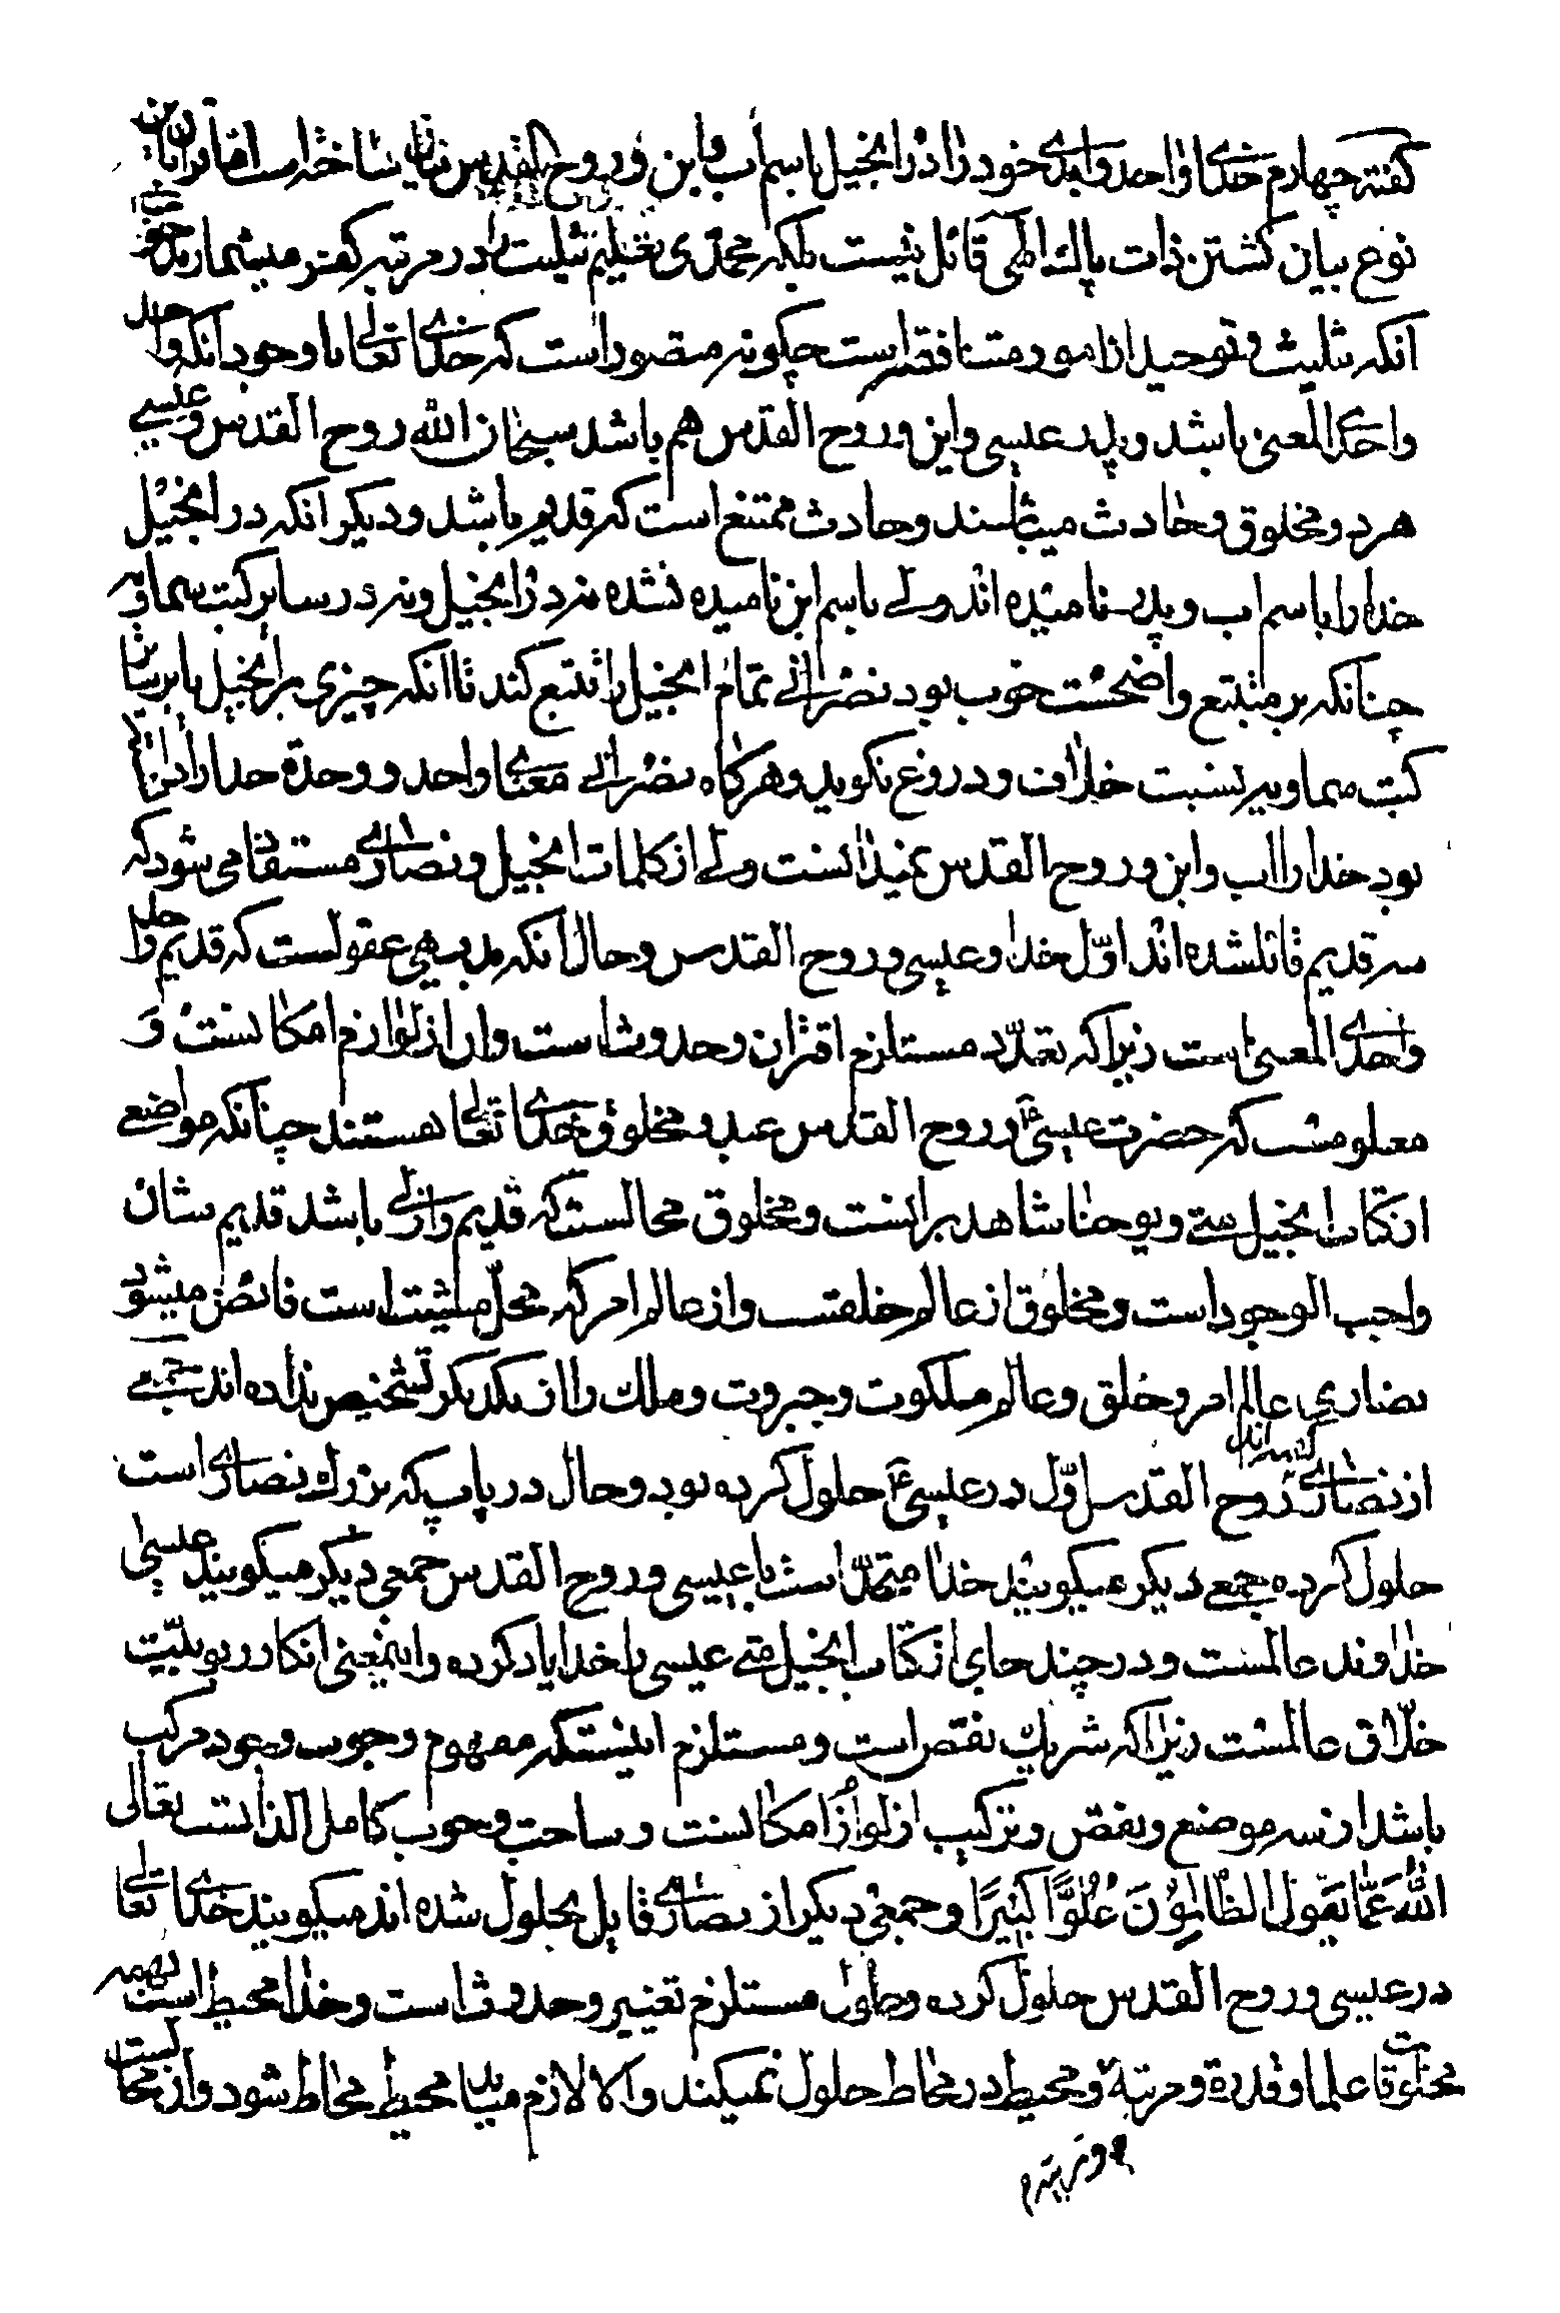 گفته چهارم خدای واحد وابدی خود را در انجیل باسم اب و ابن و روح القدس بیان ساخته است اما قران باین
نوع بیان کشتن ذات پاک الهی قائل نیست بلکه محمدی تعلیم تثلیث را در مرتبه کفر میشمارند جواب
انکه تثلیث و توحید از امور متناقضه است چکونه متصور است که خدای تعالی با وجود انکه واحد
واحدی المعنی باشد و پدر عیسی و ابن و روح القدس هم باشد سبحان الله روح القدس و عیسی
هر دو مخلوق و حادث میباشند و حادث ممتنع است که قدیم باشد و دیکر انکه در انجیل
خدا را باسم اب و پدر نامیده اند ولی باسم ابن نامیده نشده نه در انجیل و نه در سایر کتب سماویه
چنانکه بر متتبع واضحست خوب بود نصرانی تمام انجیل را تتبع کند تا انکه چیزی بر انجیل یا بر سایر
کتب سماویه نسبت خلاف و دروغ نکوید و هرکاه نصرانی معنای واحد و وحدة خدا را دانسته
بود خدا را اب و ابن و روح القدس نمیدانست ولی از کلمات انجیل و نصاری مستفاد می شود که
سه قدیم قائلشده اند اول خدا و عیسی و روح القدس و حال انکه بدیهی عقولست که قدیم واحد
واحدی المعنی است زیرا که تعدد مستلزم اقتران و حدوث است و ان از لوازم امکانست و
معلومست که حضرت عیسی ع و روح القدس عبد و مخلوق خدای تعالی هستند چنانکه مواضعی
از کتاب انجیل متی و یوحنا شاهد بر انست و مخلوق محالست که قدیم و ازلی باشد قدیم شان
واجب الوجود است و مخلوق از عالم خلقتست و از عالم امر که محل مشیت است فائض میشود
نصاری عالم امر و خلق و عالم ملکوت و جبروت و ملک را از یکدیکر تشخیص نداده اند جمعی
از نصاری گفته اند روح القدس اول در عیسی ع حلول کرده بود و حال در پاپ که بزرک نصاری است
حلول کرده جمعی دیکر میکویند خدا متحد است با عیسی و روح القدس جمعی دیکر میکویند عیسی
خداوند عالمست و در چند جای از کتاب انجیل متی عیسی را خدا یاد کرده و اینمعنی انکار ربوبیت
خلاق عالمست زیرا که شریک نقص است و مستلزم اینستکه مفهوم وجوب وجود مرکب
باشد از سه موضع و نقص و ترکیب از لوازم امکانست و ساحت وجوب کامل الذاتست تعالی
الله عَمّا یَقول الظالِمُونَ عُلُوًّا کَبیرًا و جمعی دیکر از نصاری قایل بحلول شده اند میکویند خدای تعالی
در عیسی و روح القدس حلول کرده و حلول مستلزم تغییر و حدوث است و خدا محیط است بهمه
مخلوقات علما و قدرة و مرتبة و محیط در محاط حلول نمیکند و الا لازم میاید محیط محاط شود و از محالست